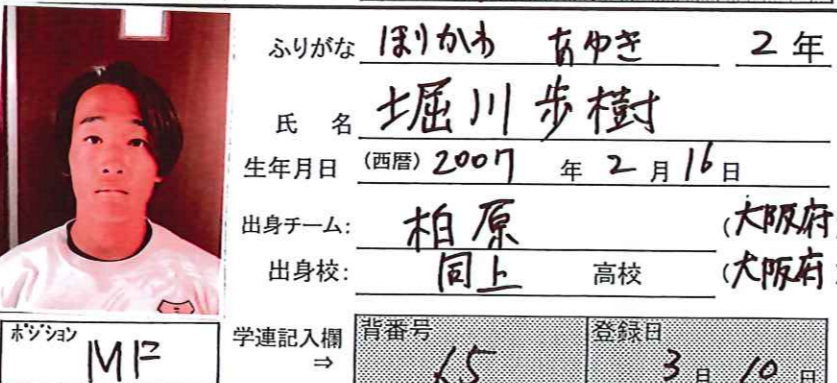 ふりがな ほりかわ あゆき 2年
氏名 堀川 歩樹
生年月日 (西暦) 2007 年 2 月 16 日
出身チーム: 柏原 (大阪府
出身校: 同上 高校 (大阪府
ポジション MF
学連記入欄 ⇒ 背番号 65 登録日 3 月 10 日